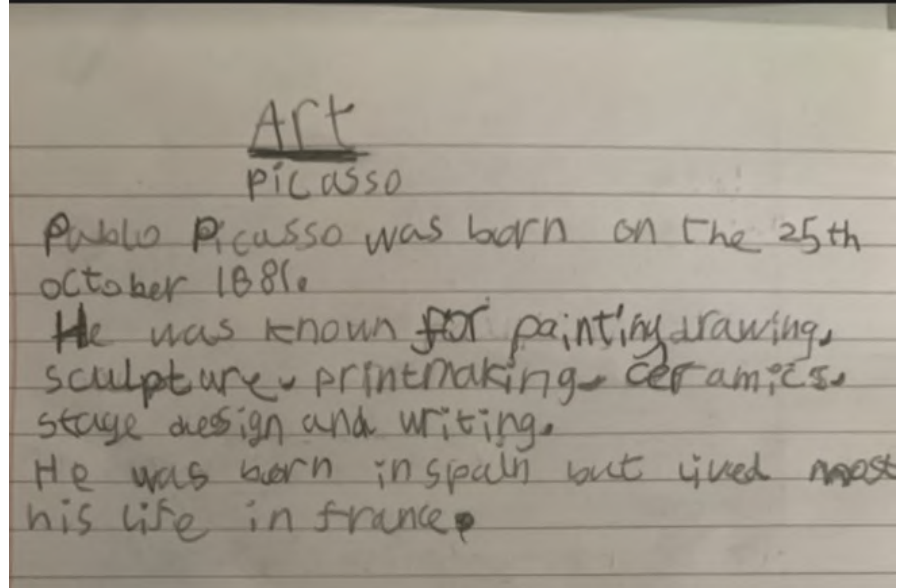 Art
picasso
Pablo Picasso was born on the 25th
october 1881.
He was known for painting, drawing,
sculpture, printmaking, ceramics,
stage design and writing.
He was born in spain but lived most
his life in france.